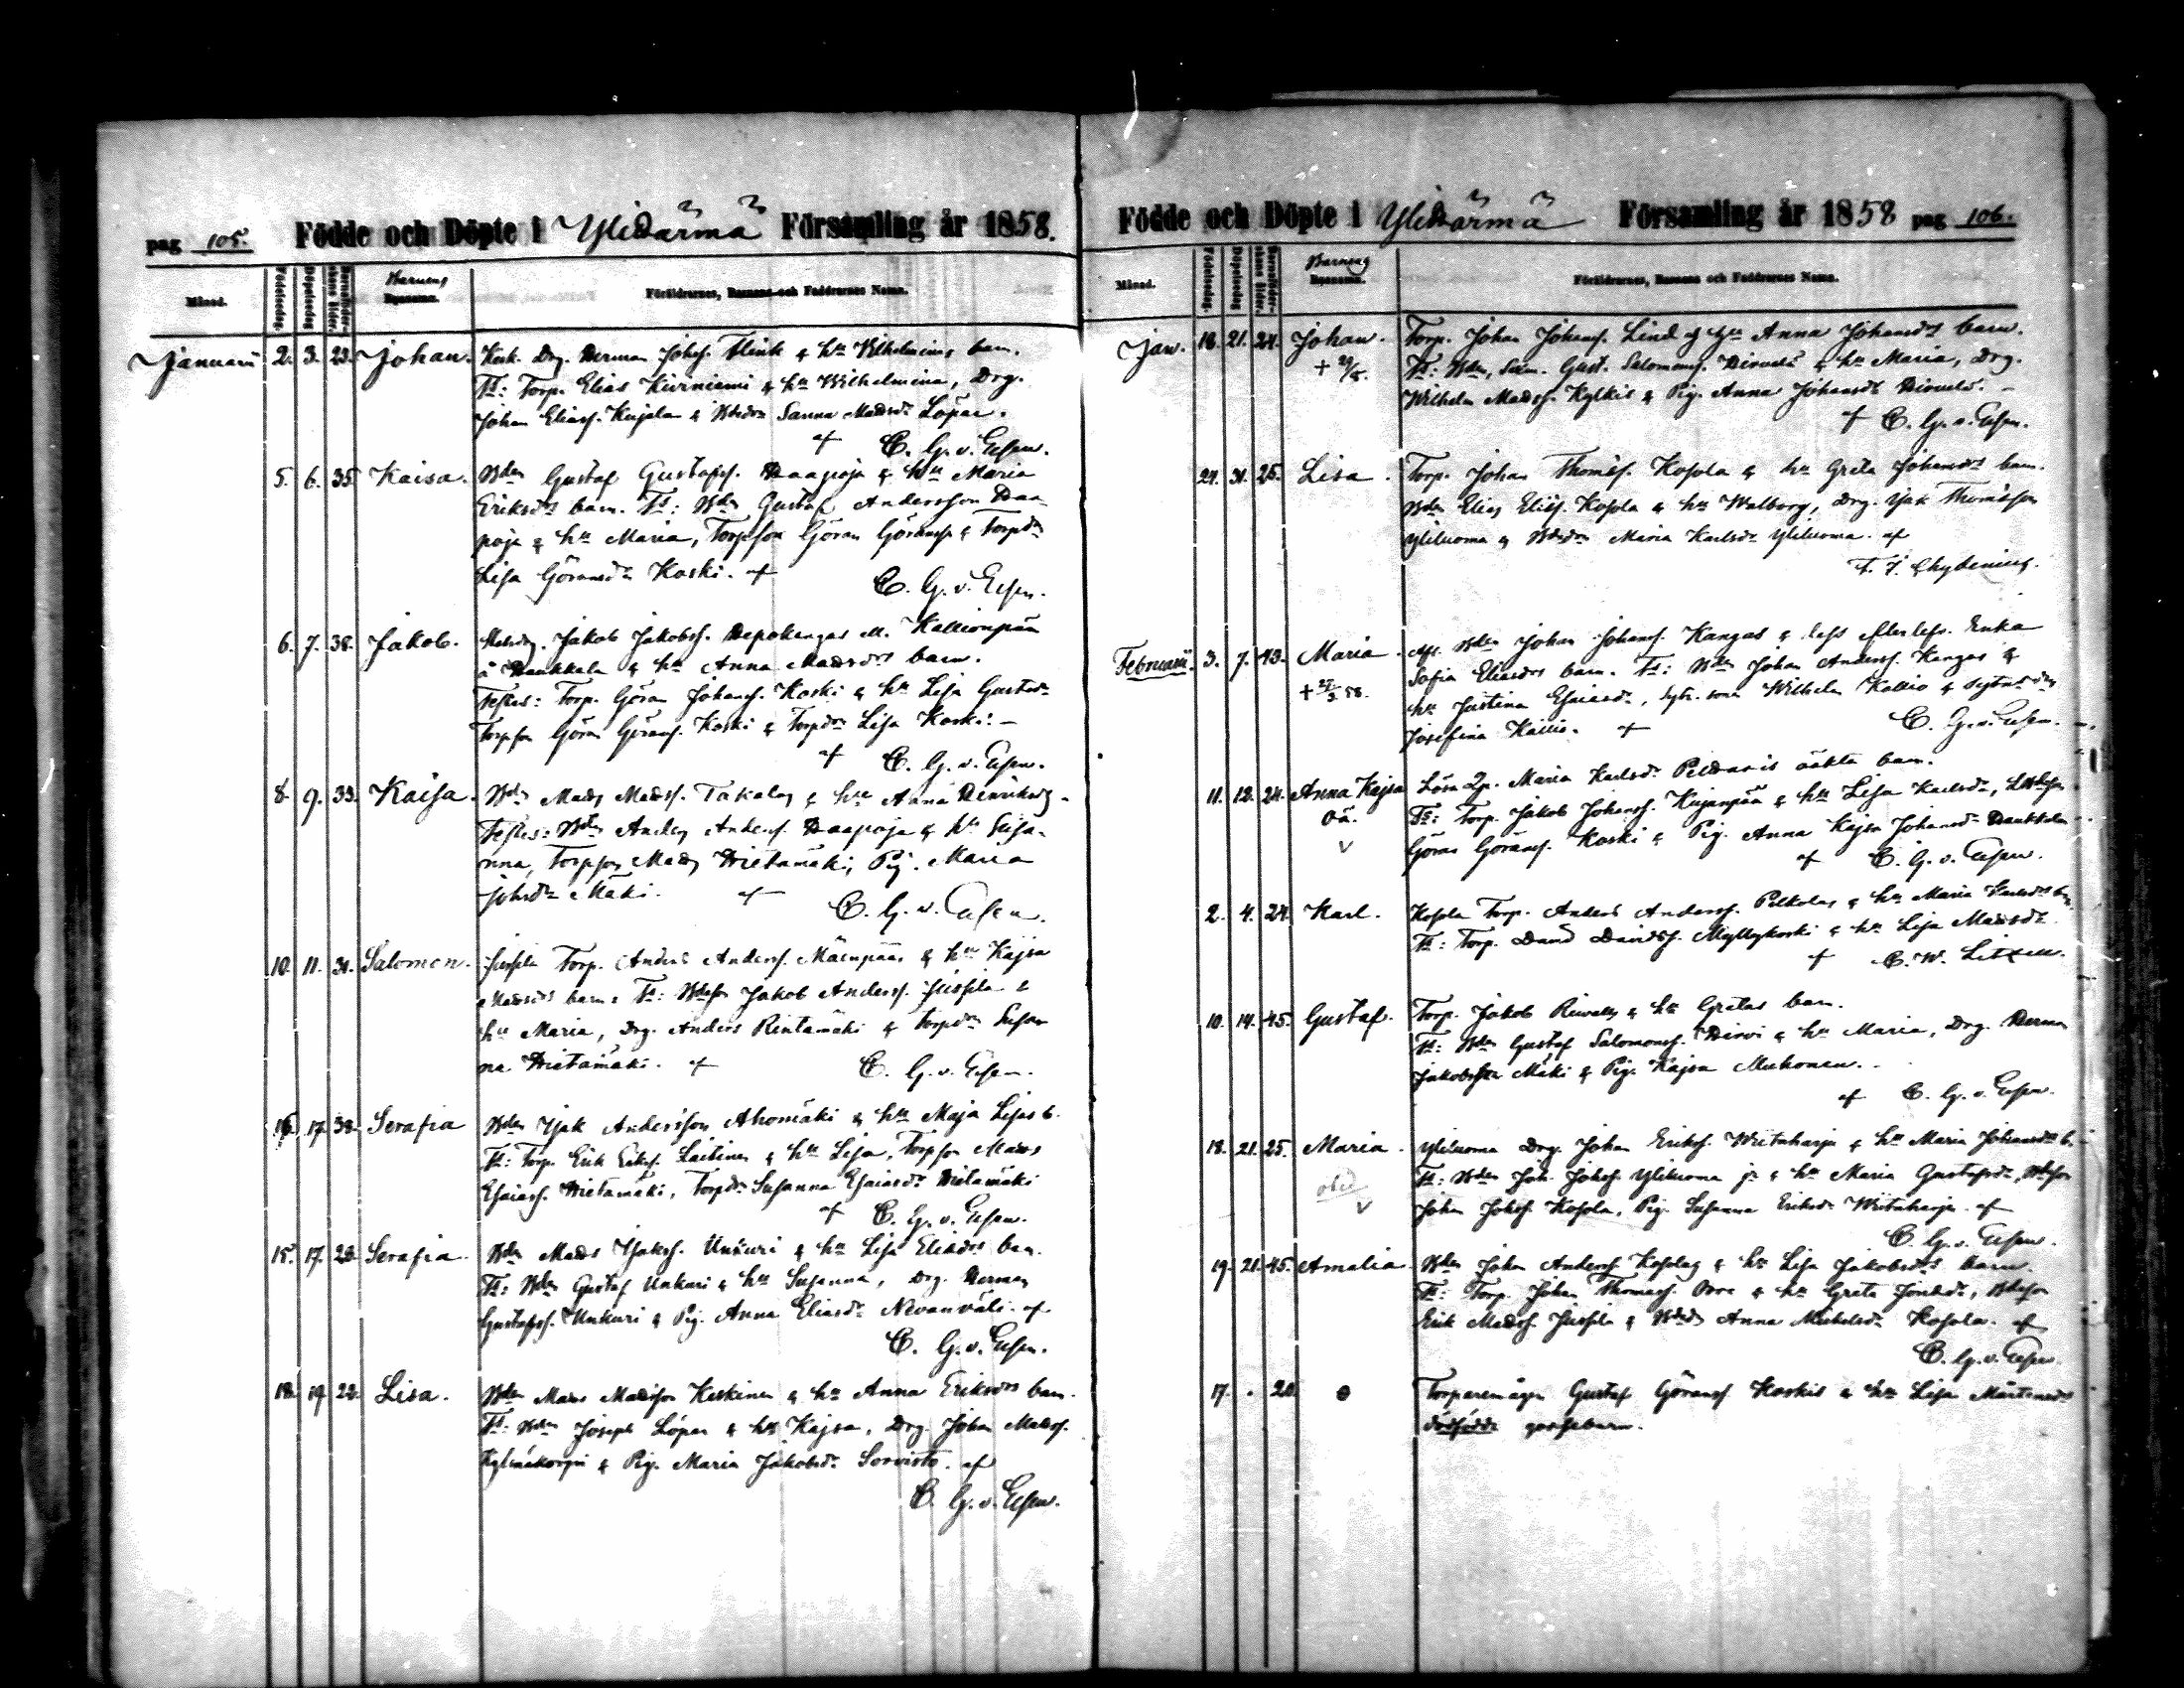 pag 105. Födde och Döpte i Ylihärmä Församling år 1858.
Månad. Födelsedag. Döpelsedag Barnens Föräldrarnes, Barnens och Faddrarnes Namn.
Januarii 2. 3. 23. Johan. Drg. Herman Johss. Flink & hu Wilhelminas barn.
Ts: Torp. Elias Kiviniemi & hu Wilhelmina, Drg.
Johan Eliass. Kujala & Bdr Sanna Madsdr Löpar.
af C. G. v. Essen.
5. 6. 35 Kaisa. Bdn Gustaf Gustafss. Haapoja & hu Maria
Eriksdrs barn. Ts: Bdn Gustaf Andersson Haa
poja & hu Maria, Torpson Göran Göranss. & Torpdr
Lisa Göransdr Koski. af C. G. v. Essen.
6. 7. 38. Jakob. Jakob Jakobss. Hepokangas M. Kallionpää
å Haukkala & hu Anna Madsdrs barn.
Testes: Torp. Göran Johanss. Koski & hu Lisa Gustdr
Torpson Göran Göranss. Koski & Torpdr Lisa Koski. —
af C. G. v. Essen.
8. 9. 33. Kaisa. Bdn Mads Madss. Takalas & hu Anna Henriksds.
Testes: Bdn Anders Anderss. Haapoja & hu Susa-
nna, Torpson Mads Hietamäki, Pig. Maria
Johsdr Mäki. af C. G. v. Essen.
10. 11. 31. Salomon. Jussila Torp. Anders Anderss. Mäenpääs & hu Kajsa
Madsdrs barn: Ts: Bdeson Jakob Anderss. Jussila &
hu Maria, Drg. Anders Rintamäki & Torpdr Susan
na Hietamäki. af C. G. v. Essen.
16. 17. 38. Serafia Bdn Isak Andersson Ahomäki & hu Maja Lisas b.
Ts: Torp. Erik Erikss. Laitinen & hu Lisa, Torpson Mads
Esaiass. Hietamäki, Torpdr Susanna Esaiasdr Hietamäki
af C. G. v. Essen.
15. 17. 23. Serafia. Bdn Mads Isakss. Unkuri & hu Lisa Eliadrs barn.
Ts: Bdn Gustaf Unkuri & hu Susanna, Drg. Herman
Gustafss. Unkuri & Pig. Anna Eliasdr Nevanväli. af
C. G. v. Essen.
18. 19. 22. Lisa. Bdn Mads Madsson Keskinen & hu Anna Eriksdrs barn.
Ts. Bdn Joseph Löpar & hu Kajsa, Drg. Johan Madss.
& Pig. Maria Jakobsdr Sorvisto. af
C. G. v. Essen.
Födde och Döpte i Ylihärmä Församling år 1858 pag 106.
Månad. Födelsedag. Döpelsedag Barnens Föräldrarnes, Barnens och Faddrarnes Namn.
Jan. 18. 21. 24. Johan. Torp. Johan Johanss. Lind & hu Anna Johansdrs barn.
Ts: Bdn, Gust. Salomonss. & hu Maria, Drg.
Wilhelm Madss. Kylkis & Pig. Anna Johansdr
af C. G. v. Essen.
24. 31. 25. Lisa. Torp. Johan Thomass. Kosola & hu Greta Johansdrs barn.
Bdn Elias Eliass. Kosola & hu Walborg, Drg. Isak Thomasson
Yliluoma & Bdr Maria Karlsdr Yliluoma. af
F. J. Chydenius.
Februarii. 3. 7. 43. Maria. Bdn Johan Johanss. Kangas & dess efterlefv. Erika
Sofia Eliasdrs barn. Ts: Bdn Johan Anderss. Kangas &
hu Justina Esaiasdr, Wilhelm Kallio &
Josefina Kallio. af C. G. v. Essen.
11. 12. 24. Anna Kajsa Lösa Qp. Maria Karlsdr Peldaris oäkta barn.
oä. Ts: Torp. Jakob Johanss. Kujanpää & hu Lisa Karlsdr,
v Göran Göranss. Koski & Pig. Anna Kajsa Johansdr Haukkala
af C. G. v. Essen.
2. 4. 24. Karl. Kosola Torp. Anders Anderss. Pelkolas & hu Maria Karlsdrs b.
Ts: Torp. David Davidss. Myllykoski & hu Lisa Madsdr.
af C. W. Litzen.
10. 14. 45. Gustaf. Torp. Jakob & hu Gretas barn.
Ts: Bdn Gustaf Salomonss. Hirvi & hu Maria, Drg. Herman
Jakobsson Mäki & Pig. Kajsa Muhonen.
af C. G. v. Essen.
18. 21. 25. Maria. Yliluoma Drg. Johan Erikss. Wiitaharju & hu Maria Johansdrs b.
Ts: Bdn Joh. Johss. Yliluoma jr & hu Maria Gustafsdr, Bdeson
v Johan Johss. Kosola, Pig. Susanna Eriksdr Wiitaharju. af
C. G. v. Essen.
19. 21. 45. Amalia. Bdn Johan Anderss. Kosolas & hu Lisa Jakobsdrs barn.
Ts: Torp. Johan Thomass. Orre & hu Greta, Bdeson
Erik Madss. Jussila & Bddr Anna Michelsdr Kosola. af
C. G. v. Essen.
17. . 20. Torparemågen Gustaf Göranss. Koskis & hu Lisa Mårtensdrs
dödfödda gossebarn.